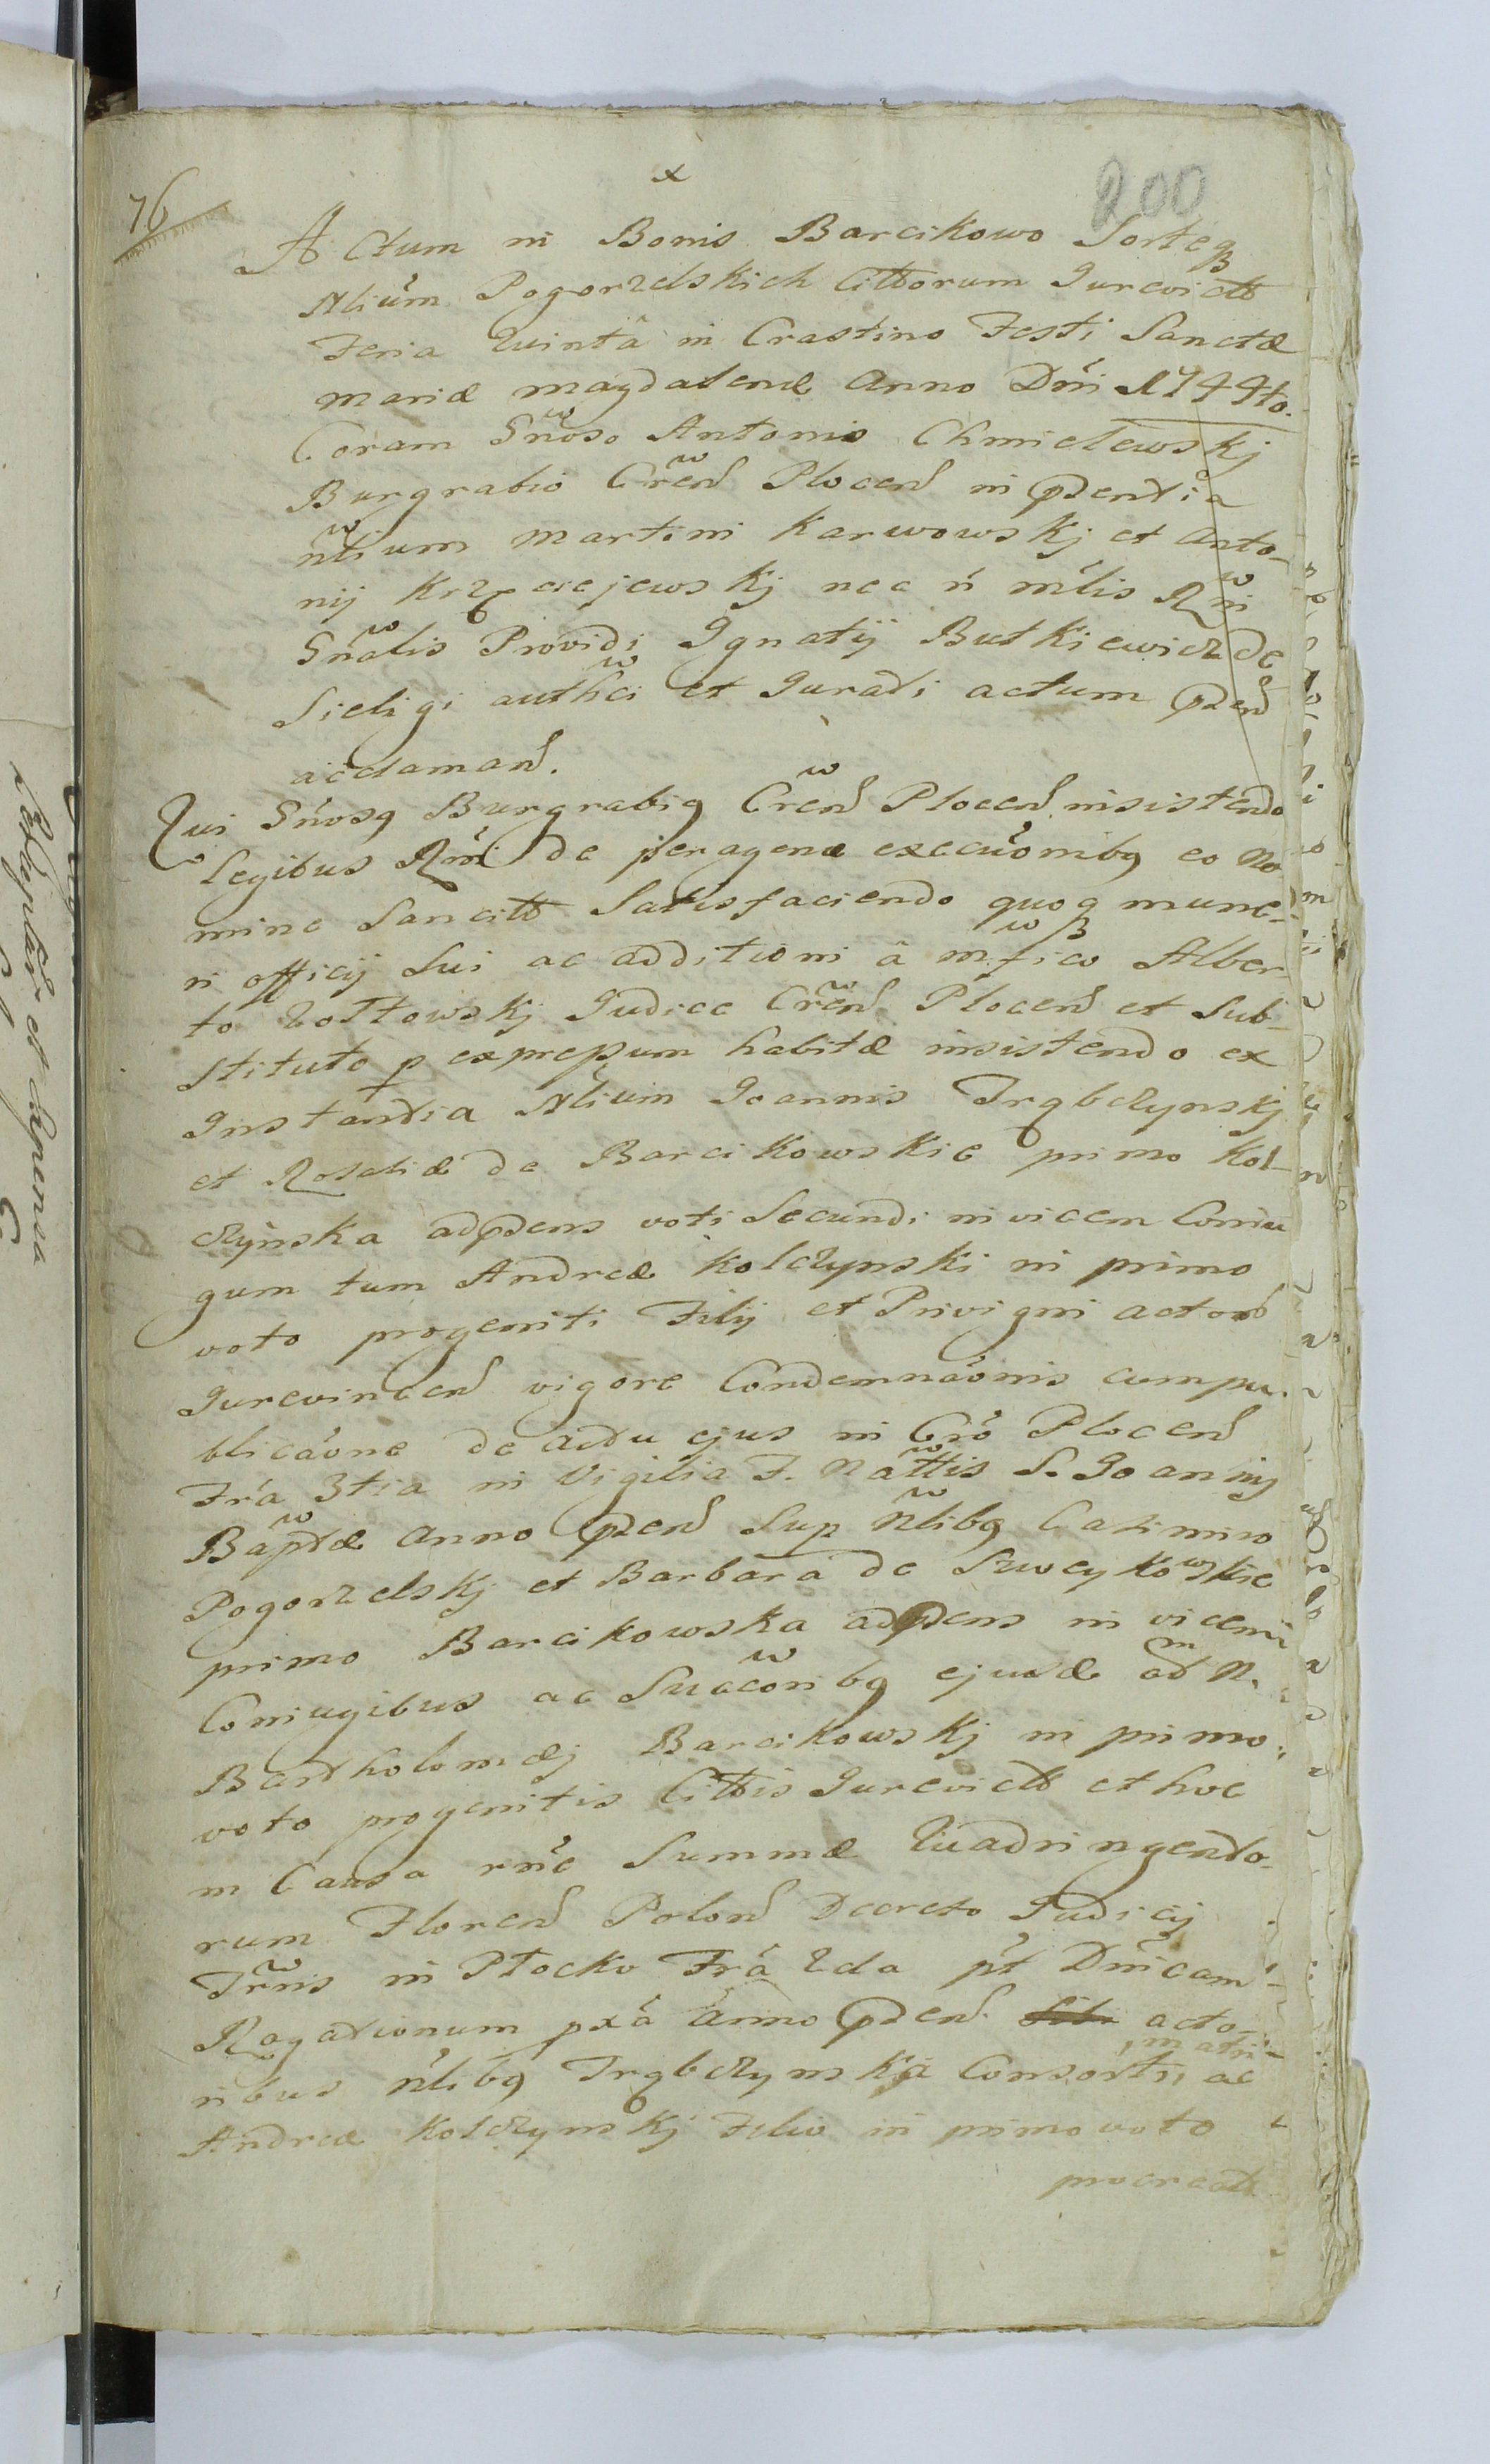 x
200
76
Actum in Bonis Barcikowo Sorteq
Nlium Pogorzelskich Cittorum Jurevict
Feria Quintâ in Crastino Festi Sanctæ
Mariæ Magdalenæ Anno Dñi 1744to.
Coram Gñoso Antonio Chmielewskj
Burgrabio Cren̄ Plocen̄ in pñtia
Nlium Martini Karwowskj et Anto-
nij Krzęciejewskj nec ñ mlis Rñi
Gñalis Providi Ignatij Butkiewicz de
Sieligi authci et Jurati actum pñten̄
acclaman̄.
Qui Gñosq Burgrabiq Cren̄ Plocen̄ insistendo
legibus Rñi de peragenæ execuõnibq eo No
mine Sancitt Satisfaciendo quoq mune-
ri officij Sui ac additioni â mfico Alber-
to Zołtowskj Judice Cren̄ Plocen̄ et Sub-
stituto p expressum habitæ insistendo ex
Instantia Nlium Joannis Trębczynskj
et Rosaliæ de Barcikowskie primo Kol-
czynska adpñens voti Secundi invicem Coniu
gum tum Andreæ Kolczynski in primo
voto progeniti Filij et Privigni actorũ
Jurevincen̄ vigore Condemnaõnis cumpu-
blicaõne de actu ejus in Cro Plocen̄
Fra 3tia in Vigilia F. Nattis S. Joannis
Baptæ Anno pñten̄ Sup Nlibq Casimiro
Pogorzelskj et Barbara de Szweykowskie
primo Barcikowska adpñens in vicem
Coniugibus ac Succõribq ejusdæ ad N.
Bartholomæj Barcikowskj in primo
voto progenitis Cittis Jurevict et hoc
in Causa rñe Summæ Quadringento-
rum Floren̄ Polon̄ Decreto Judicij
Trñis in Płocko Fra 2da pt Dñicam
Rogationum pxa anno pñten̄. acto-
ribus Nlibq Trębczynska Consorti, matri ac
Andreæ Kolczynskj Filio in primo voto
procreatt